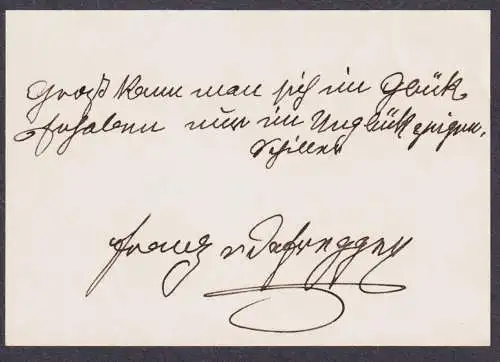 Groß kann man sich im Glück
Erhaben nur im Unglück zeigen.
Schiller
Franz v Defregger